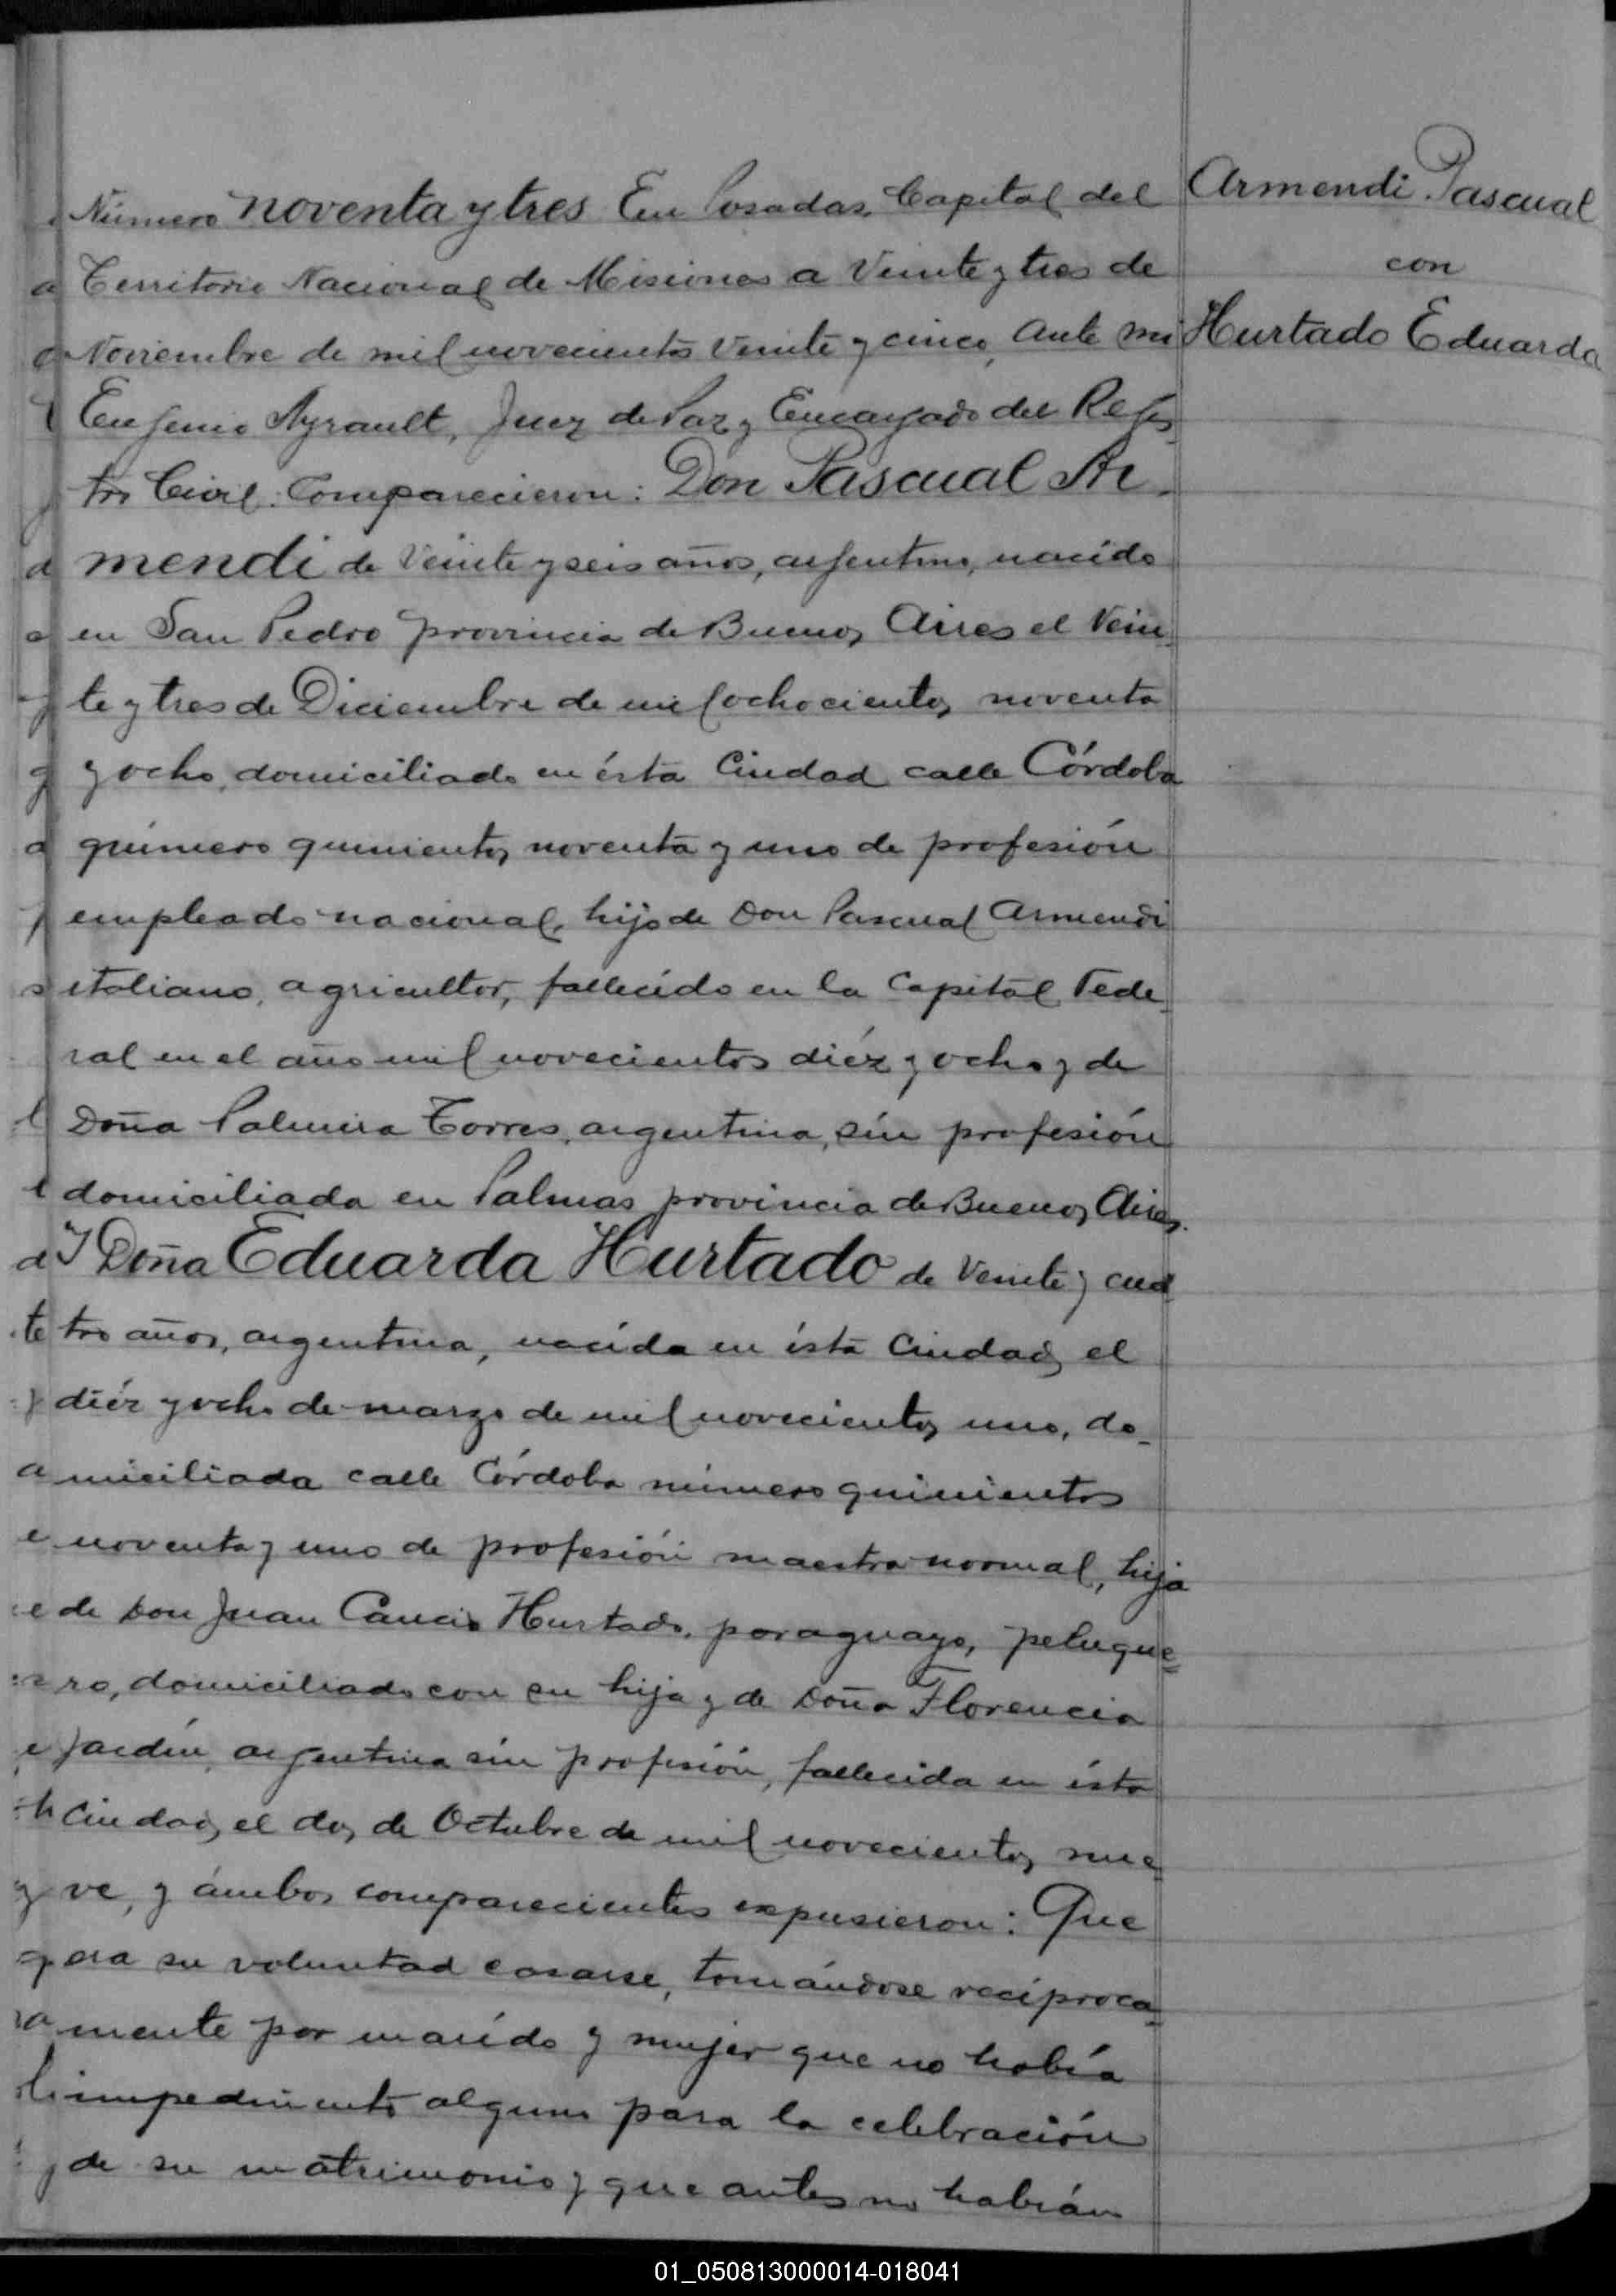 Armendi Pascual
con
Hurtado Eduarda
Número noventa y tres En Posadas, Capital del
Territorio Nacional de Misiones a Veinte y tres de
Noviembre de mil novecientos Veinte y cinco, ante mi
Eugenio Ayrault, Juez de Paz y Encargado del Regis
tro Civil: Comparecieron: Don Pascual Ar-
mendi de Veinte y seis años, argentino, nacido
en San Pedro provincia de Buenos Aires el Vein-
te y tres de Diciembre de mil ochocientos noventa
y ocho, domiciliado en ésta Ciudad calle Córdoba
número quinientos noventa y uno de profesión
empleado nacional, hijo de Don Pascual Armendi
italiano, agricultor, fallecido en la Capital Fede-
ral en el año mil novecientos diéz y ocho y de
Doña Palmira Torres, argentina, sin profesión
domiciliada en Palmas provincia de Buenos Aires.
Y Doña Eduarda Hurtado de Veinte y cua
tro años, argentina, nacida en ésta Ciudad, el
diéz y ocho de marzo de mil novecientos uno, do-
miciliada calle Córdoba número quinientos
noventa y uno de profesión maestra normal, hija
de Don Juan Cancio Hurtado, paraguayo, peluque-
ro, domiciliado con su hija y de Doña Florencia
Jardín, argentina sin profesión, fallecida en ésta
Ciudad, el dos de Octubre de mil novecientos nue-
ve, y ámbos comparecientes expusieron: Que
era su voluntad casarse, tomándose recíproca-
mente por marido y mujer que no había
impedimento alguno para la celebración
de su matrimonio y que antes no habían
01_050813000014-018041